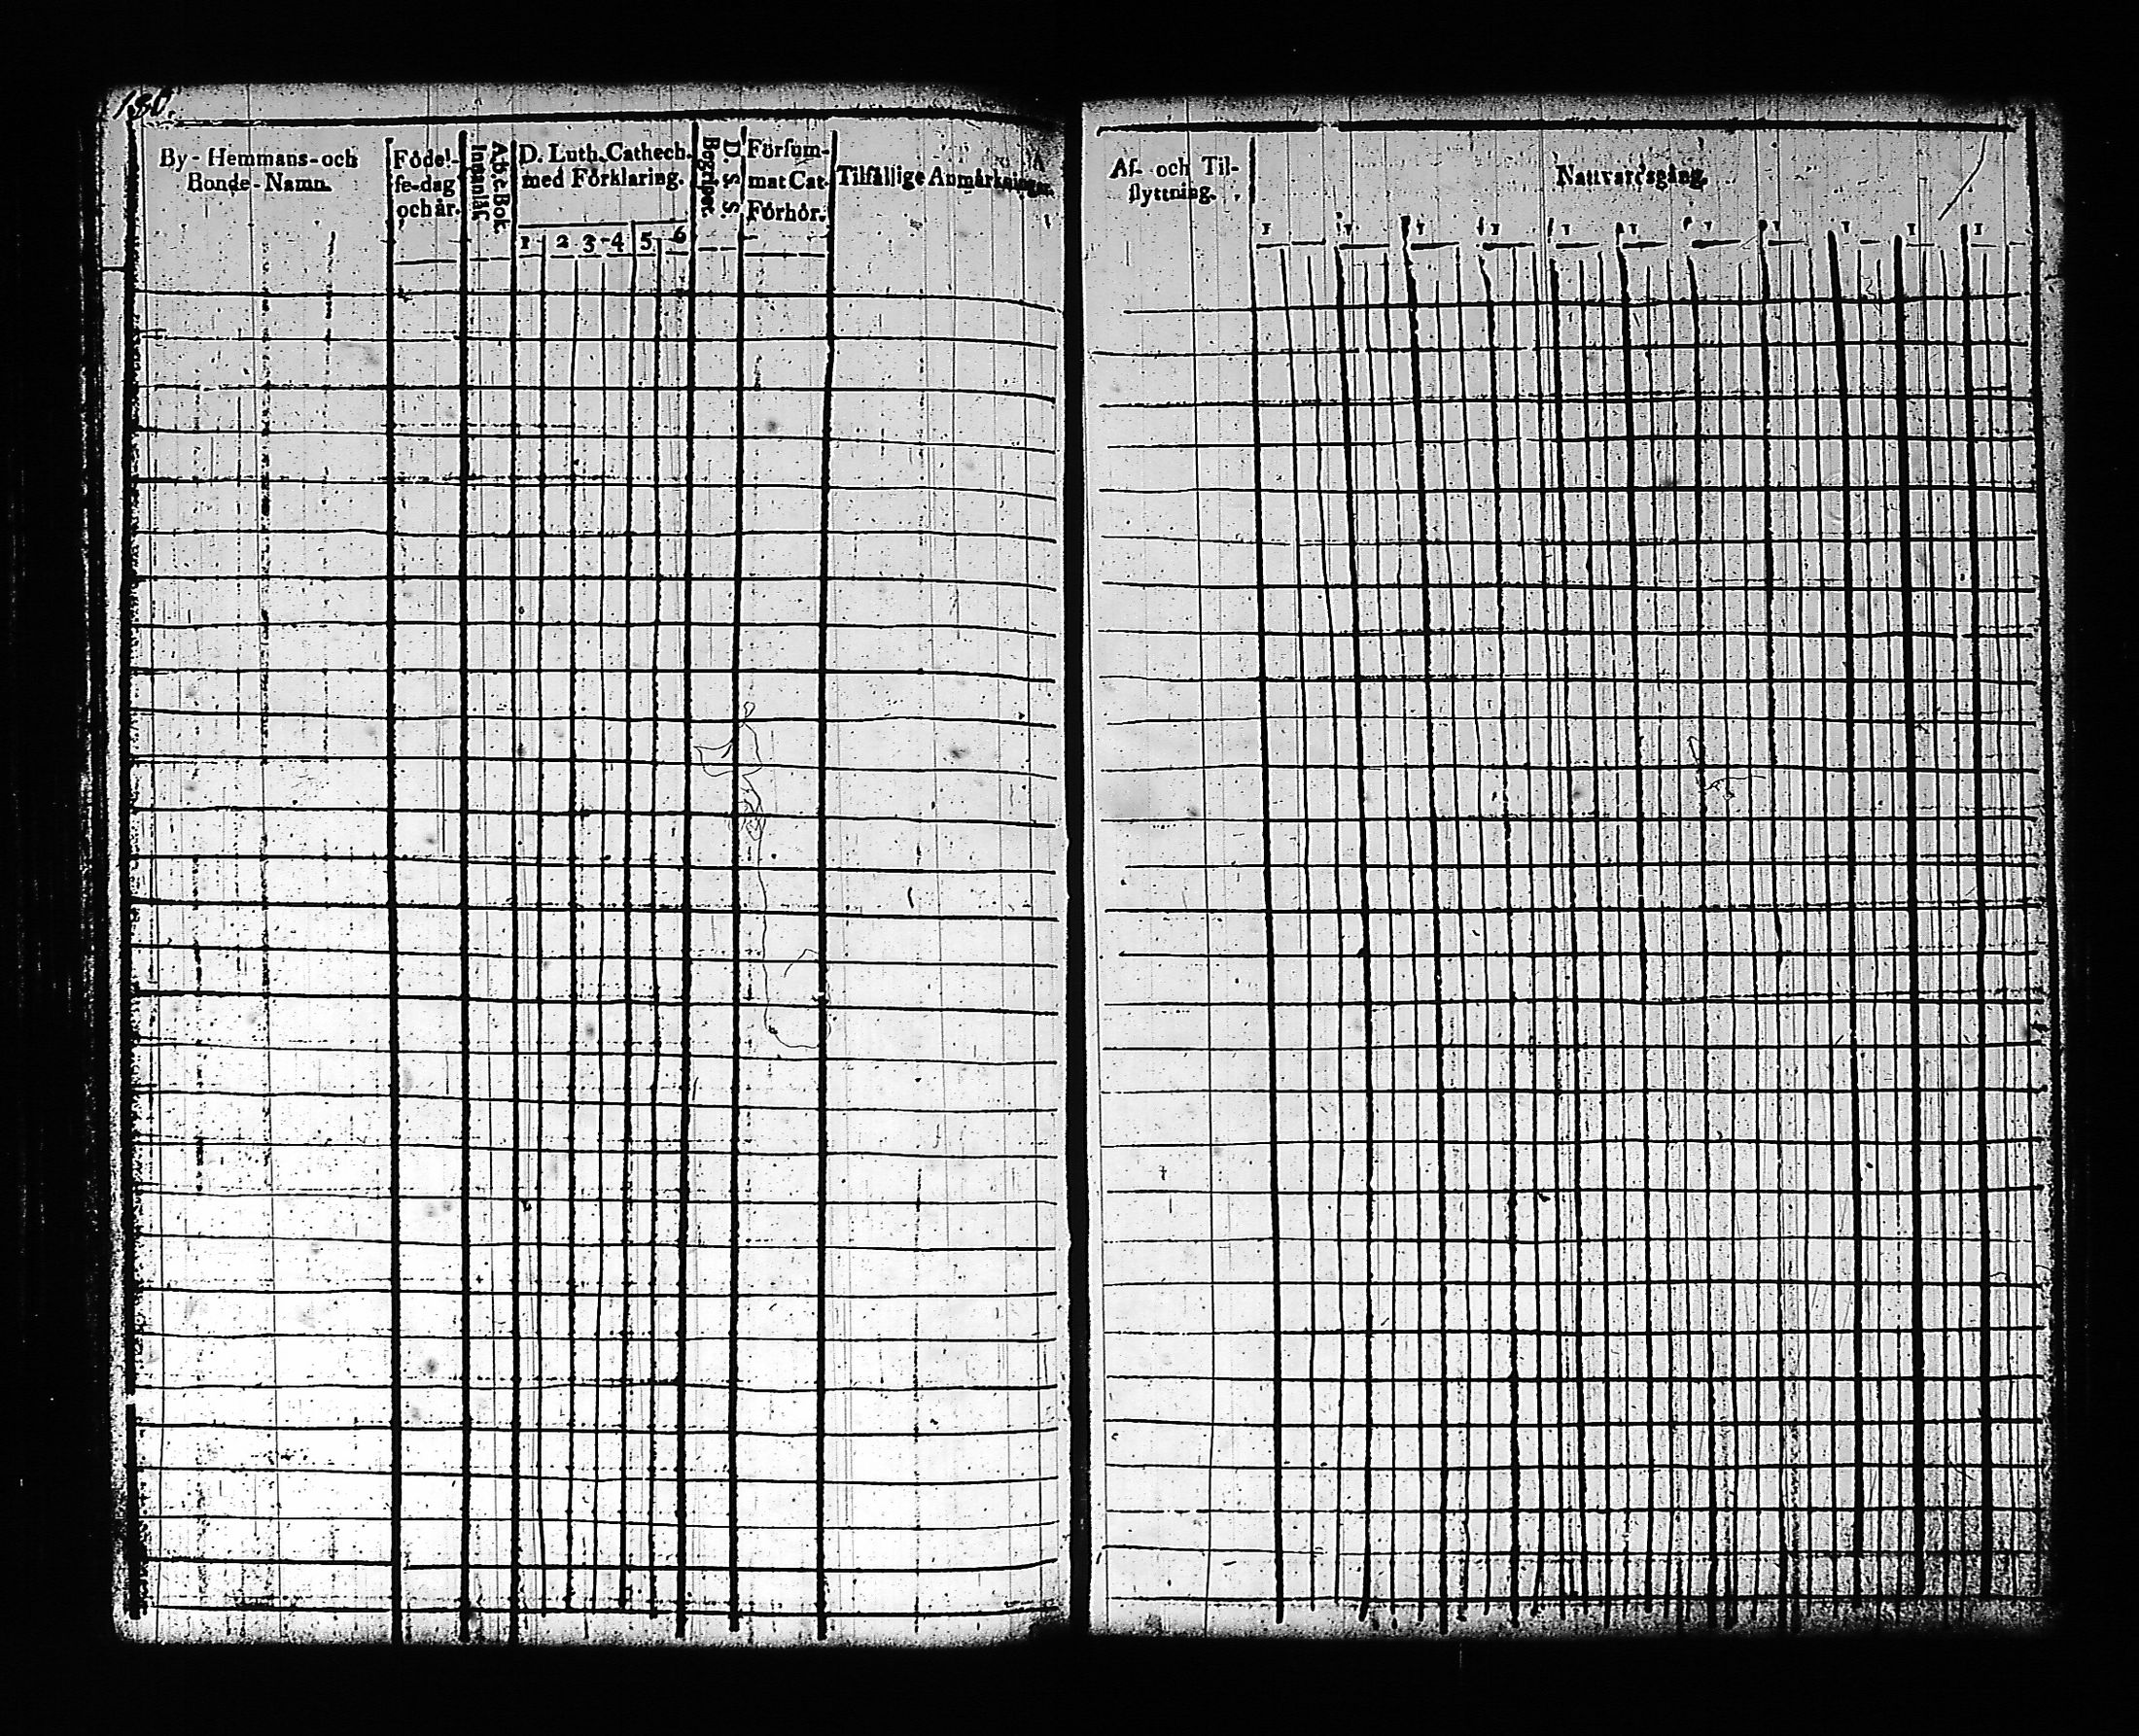 180.
By-Hemmans-och
Bonde-Namn.
Födel-
se-dag
och år.
A.b.c.Bok
Innantil.
D. Luth. Cathech.
med Förklaring.
1 2 3 4 5 6
D. S. S.
Begriper.
Försum-
mat Cat.
Förhör.
Tilfällige Anmärkningar.
Af- och Til-
flyttning.
Nattvardsgång.
1 1 1 1 1 1 1 1 1 1 1